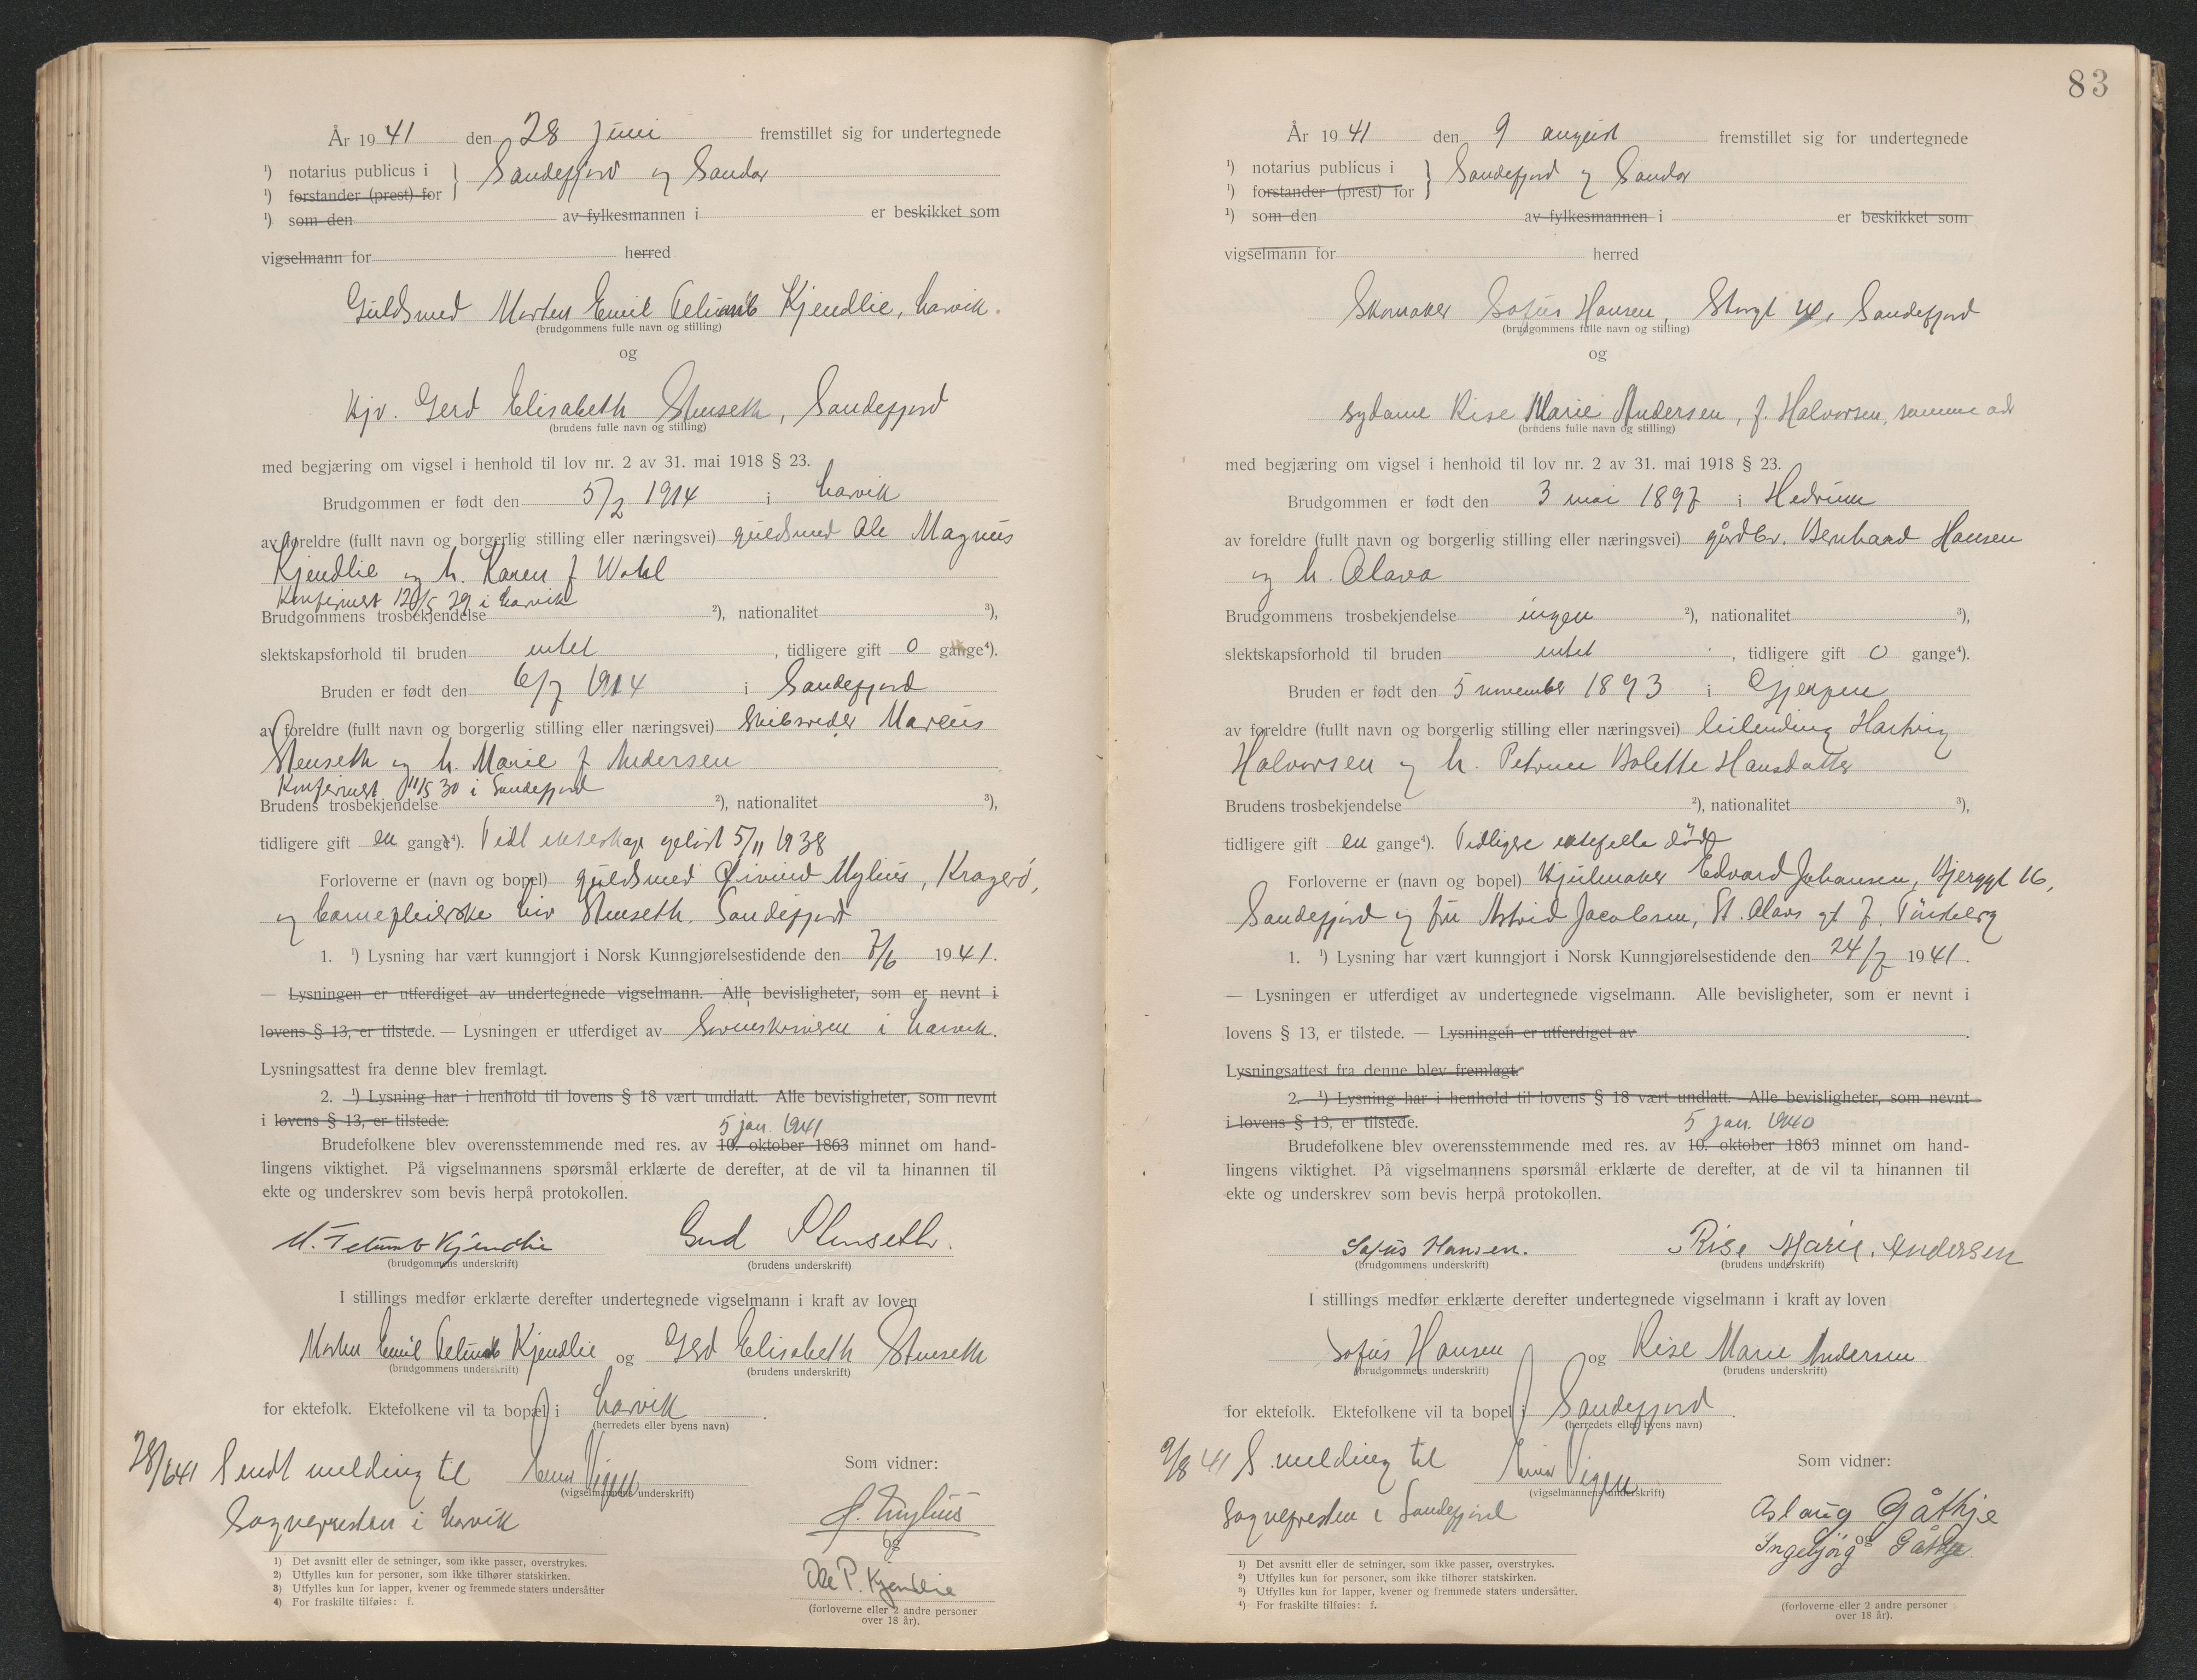 År 1941 den 28 juni fremstillet sig for undertegnede
¹) notarius publicus i } Sandefjord og Sandar
¹) forstander (prest) for
¹) som den av fylkesmannen i er beskikket som
vigselmann for herred
Guldsmed Morten Emil Kjendlie, Larvik.
(brudgommens fulle navn og stilling)
og
Gerd Elisabeth Stenseth, Sandefjord
(brudens fulle navn og stilling)
med begjæring om vigsel i henhold til lov nr. 2 av 31. mai 1918 § 23.
Brudgommen er født den 5/2 1914 i Larvik
av foreldre (fullt navn og borgerlig stilling eller næringsvei) guldsmed Ole Magnus
Kjendlie og h. Karen f Wahl
Konfirmert i Larvik
Brudgommens trosbekjendelse ²), nationalitet ³),
slektskapsforhold til bruden intet, tidligere gift 0 gange⁴).
Bruden er født den 6/7 1914 i Sandefjord
av foreldre (fullt navn og borgerlig stilling eller næringsvei) skibsreder Marcus
Stenseth og h. Marie f Andersen
Konfirmert 11/5 30 i Sandefjord
Brudens trosbekjendelse ²), nationalitet ³),
tidligere gift en gang⁴). Tidl ekteskap opløst 5/11 1938
Forloverne er (navn og bopel) guldsmed Øivind Mylius, Kragerø,
og barnepleierske Liv Stenseth. Sandefjord
1. ¹) Lysning har vært kunngjort i Norsk Kunngjørelsestidende den 7/6 1941.
— Lysningen er utferdiget av undertegnede vigselmann. Alle bevisligheter, som er nevnt i
lovens § 13, er tilstede. — Lysningen er utferdiget av Sorenskriveren i Larvik.
Lysningsattest fra denne blev fremlagt.
2. ¹) Lysning har i henhold til lovens § 18 vært undlatt. Alle bevisligheter, som nevnt
i lovens § 13, er tilstede.
5 jan. 1941
Brudefolkene blev overensstemmende med res. av 10. oktober 1863 minnet om hand-
lingens viktighet. På vigselmannens spørsmål erklærte de derefter, at de vil ta hinannen til
ekte og underskrev som bevis herpå protokollen.
M. Kjendlie Gerd Stenseth.
(brudgommens underskrift) (brudens underskrift)
I stillings medfør erklærte derefter undertegnede vigselmann i kraft av loven
Morten Emil Kjendlie og Gerd Elisabeth Stenseth
(brudgommens underskrift) (brudens underskrift)
for ektefolk. Ektefolkene vil ta bopæl i Larvik.
(herredets eller byens navn)
28/6 41 Sendt melding til Einar Vigen Som vidner:
(vigselmannens underskrift)
Sognepresten i Larvik Ø. Mylius
og
Ole P. Kjendlie
1) Det avsnitt eller de setninger, som ikke passer, overstrykes.
2) Utfylles kun for personer, som ikke tilhører statskirken.
3) Utfylles kun for lapper, kvener og fremmede staters undersåtter
4) For fraskilte tilføies: f.
(forloverne eller 2 andre personer
over 18 år).
83
År 1941 den 9 august fremstillet sig for undertegnede
¹) notarius publicus i } Sandefjord og Sandar
¹) forstander (prest) for
²) som den av fylkesmannen i er beskikket som
vigselmann for herred
Skomaker Sofus Hansen, Storgt Sandefjord
(brudgommens fulle navn og stilling)
og
sydame Rise Marie Andersen, f. Halvorsen, samme adr
(brudens fulle navn og stilling)
med begjæring om vigsel i henhold til lov nr. 2 av 31. mai 1918 § 23.
Brudgommen er født den 3 mai 1897 i Hedrum
av foreldre (fullt navn og borgerlig stilling eller næringsvei) gårdbr. Bernhard Hansen
og h. Olava
Brudgommens trosbekjendelse ingen ²), nationalitet ³),
slektskapsforhold til bruden intet, tidligere gift 0 gange⁴).
Bruden er født den 5 november 1893 i Gjerpen
av foreldre (fullt navn og borgerlig stilling eller næringsvei) leilending Hartvig
Halvorsen og h. Petrine Bolette Hansdatter
Brudens trosbekjendelse ²), nationalitet ³),
tidligere gift en gange⁴). Tidligere ektefelle død
Forloverne er (navn og bopel) Hjulmaker Edvard Johansen, Bjerggt 16,
Sandefjord og fru Astrid Jacobsen, St. Olavs gt 7. Tønsberg
1. ¹) Lysning har vært kunngjort i Norsk Kunngjørelsestidende den 24/7 1941.
— Lysningen er utferdiget av undertegnede vigselmann. Alle bevisligheter, som er nevnt i
lovens § 13, er tilstede. — Lysningen er utferdiget av
Lysningsattest fra denne blev fremlagt.
2. ¹) Lysning har i henhold til lovens § 18 vært undlatt. Alle bevisligheter, som nevnt
i lovens § 13, er tilstede.
5 jan. 1940
Brudefolkene blev overensstemmende med res. av 10. oktober 1863 minnet om hand-
lingens viktighet. På vigselmannens spørsmål erklærte de derefter, at de vil ta hinannen til
ekte og underskrev som bevis herpå protokollen.
Sofus Hansen. Rise Marie. Andersen
(brudgommens underskrift) (brudens underskrift)
I stillings medfør erklærte derefter undertegnede vigselmann i kraft av loven
Sofus Hansen og Rise Marie Andersen
(brudgommens underskrift) (brudens underskrift)
for ektefolk. Ektefolkene vil ta bopel i Sandefjord.
(herredets eller byens navn)
9/8 41 S. melding til Einar Vigen Som vidner:
(vigselmannens underskrift)
Sognepresten i Sandefjord Aslaug Gåthje
og
Ingebjørg Gåthje
1) Det avsnitt eller de setninger, som ikke passer, overstrykes.
²) Utfylles kun for personer, som ikke tilhører statskirken.
³) Utfylles kun for lapper, kvener og fremmede staters undersåtter.
⁴) For fraskilte tilføies: f.
(forloverne eller 2 andre personer
over 18 år).